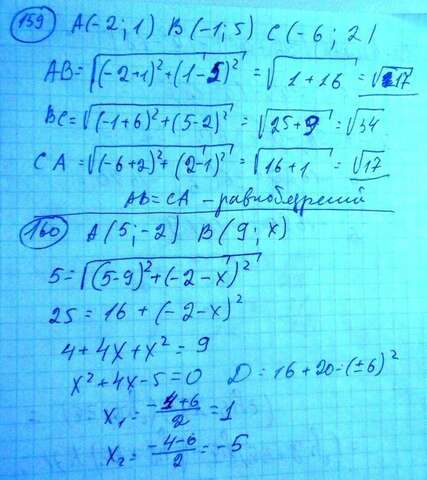 159 A(-2; 1) B(-1; 5) C(-6; 2)
AB = √((-2+1)² + (1-5)²) = √(1+16) = √17
BC = √((-1+6)² + (5-2)²) = √(25+9) = √34
CA = √((-6+2)² + (2-1)²) = √(16+1) = √17
AB = CA - равнобедрений
160 A(5; -2) B(9; x)
5 = √((5-9)² + (-2-x)²)
25 = 16 + (-2-x)²
4 + 4x + x² = 9
x² + 4x - 5 = 0 D = 16 + 20 = (±6)²
x₁ = (-4+6)/2 = 1
x₂ = (-4-6)/2 = -5